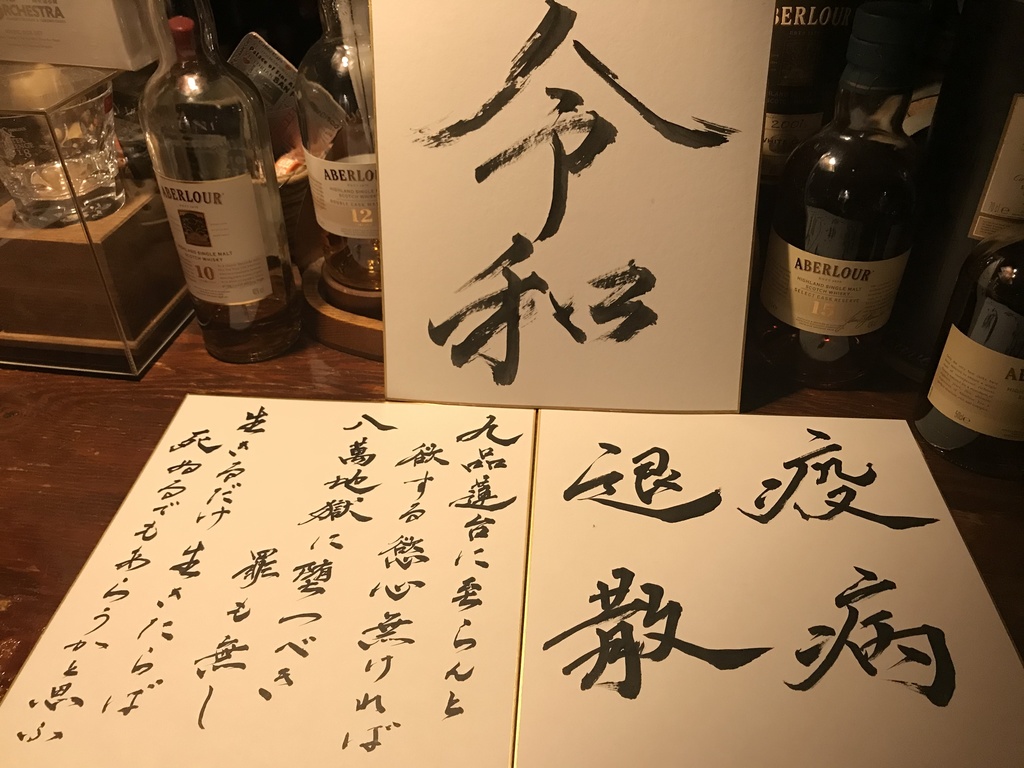 令和
疫病
退散
九品蓮台に至らんと
欲する慾心無ければ
八萬地獄に堕つべき
罪も無し
生きるだけ 生きたらば
死ぬるでもあらうかと思ふ
RCHESTRA
ABERLOUR
HIGHLAND SINGLE MALT
SCOTCH WHISKY
10
ABERLOUR
HIGHLAND SINGLE
SCOTCH WHISKY
12
BERLOUR
ABERLOUR
HIGHLAND SINGLE MALT
SCOTCH WHISKY
SELECT CASK RESERVE
15